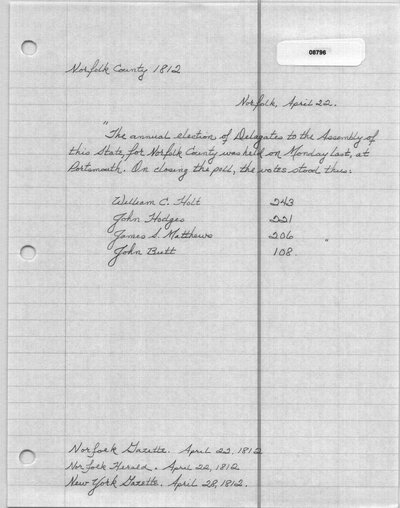 08796
Norfolk County 1812
Norfolk, April 22.
"The annual election of Delegates to the Assembly of
this State, for Norfolk County was held on Monday last, at
Portsmouth. On closing the poll, the votes stood thus:
William C. Holt 243
John Hodges 221
James S. Matthews 206 "
John Butt 108
Norfolk Gazette. April 22, 1812
Norfolk Herald. April 22, 1812
New York Gazette. April 28, 1812.